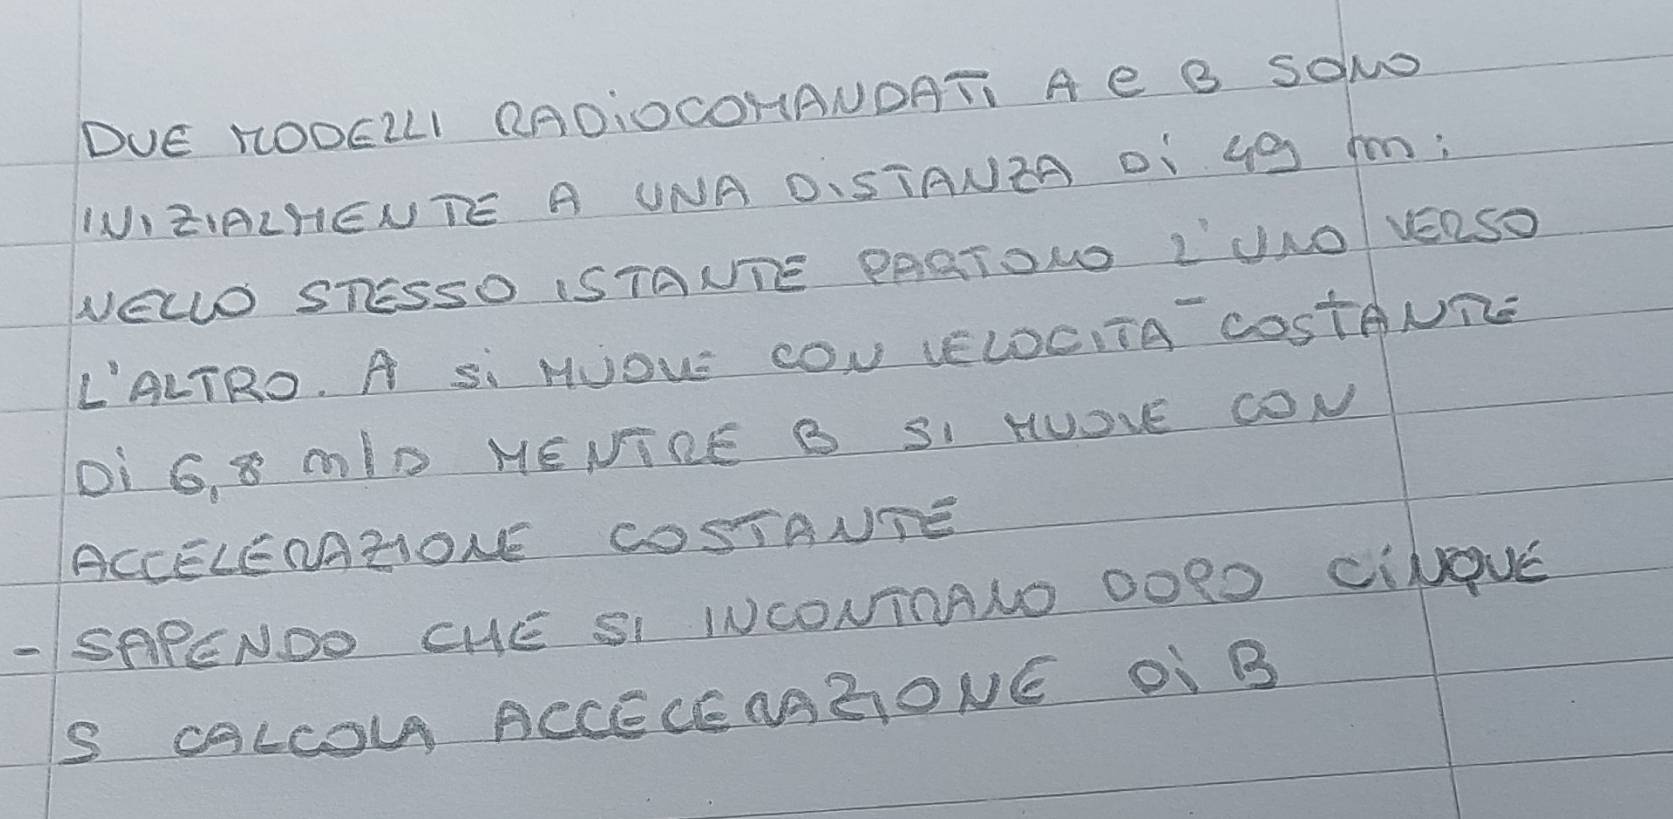 DUE MODELLI RADiOCOMANDATi A e B SONO
INIZIALMENTE A UNA DISTANZA Di 49 m;
NELLO STESSO ISTANTE PARTONO L'UNO VERSO
L'ALTRO. A Si MUOVE CON VELOCITA- COSTANTE
Di 6,8 m/s MENTRE B SI MUOVE CON
ACCELERAZIONE COSTANTE
- SAPENDO CHE SI INCONTRANO DOPO CiNQUE
S CALCOLA ACCELERAZIONE Di B